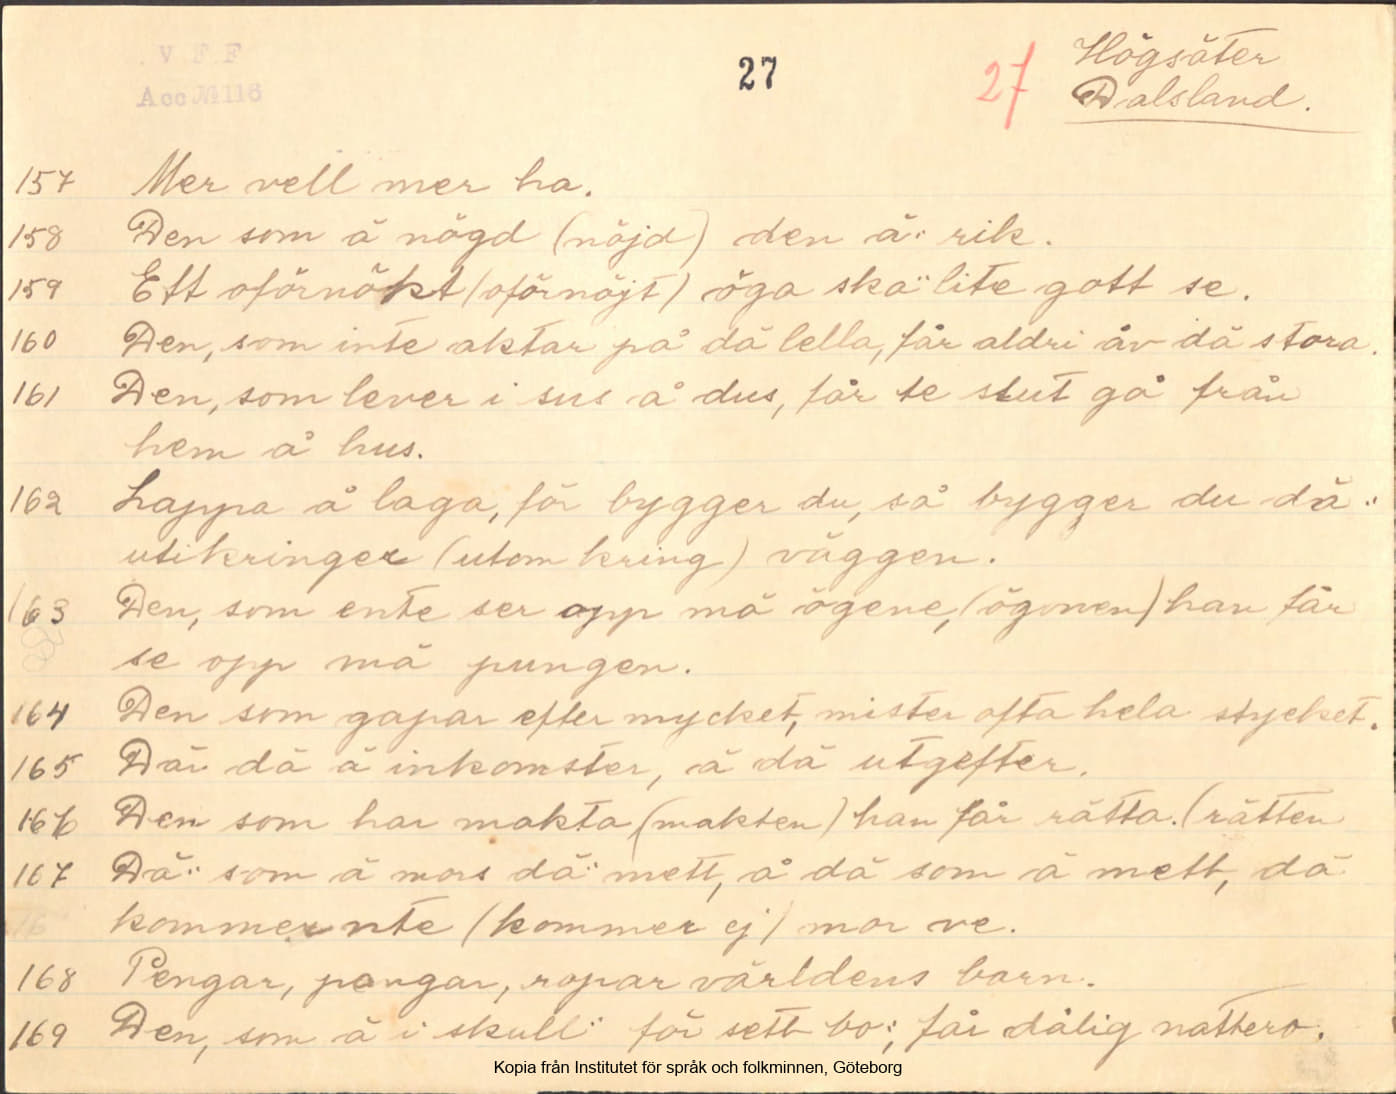 V F F
Acc № 118
27
27
Högsäter
Dalsland.
157 Mer vell mer ha.
158 Den som ä nögd (nöjd) den ä: rik.
159 Ett oförnökt (oförnöjt) öga ska: lite gott se.
160 Den, som inte aktar på dä lella, får aldri åv dä stora.
161 Den, som lever i sus å dus, får te slut gå från
hem å hus.
162 Lappa å laga, för bygger du, så bygger du dä:
utikringer (utom kring) väggen.
163 Den, som ente ser opp mä ögene, (ögonen) han får
se opp mä pungen.
164 Den som gapar efter mycket, mister ofta hela stycket.
165 Där dä ä inkomster, ä dä utgefter.
166 Den som har makta (makten) han får rätta. (rätten
167 Dä: som ä mors dä: mett, å dä som ä mett, dä
kommer nte (kommer ej) mor ve.
168 Pengar, pengar, ropar världens barn.
169 Den, som ä i skull: för sett bo:, får dålig nattero.
Kopia från Institutet för språk och folkminnen, Göteborg